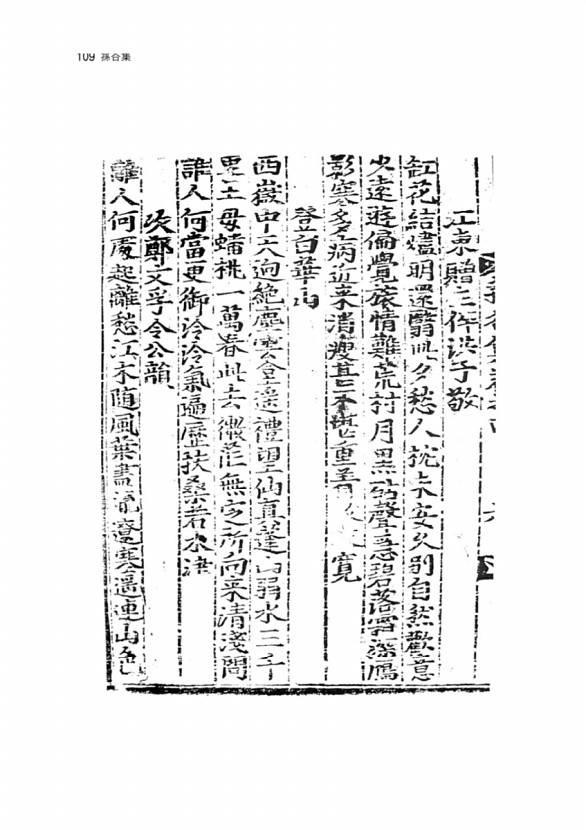 109 孫合集
江東贈三伴洪子敬
缸花結燼明還翳此夕愁人枕未安久別自然歡意
火遠遊偏覺旅情難荒村月黑砧聲急碧落霜深鴈
影寒多病近来消瘦甚 重 寬
登白華山
西嶽中天逈絶塵雲臺遥禮望仙真蓬山弱水三千
里王母蟠桃一萬春此去微茫無定所向来清淺問
誰人何當更御泠泠氣遍歷扶桑若水津
次鄭文孚令公韻
離人何處起離愁江木随風葉盡流遼塞遥連山色